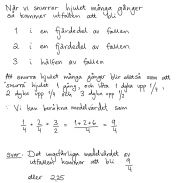 När vi snurrar hjulet många gånger
så kommer utfallen att bli
1 i en fjärdedel av fallen
2 i en fjärdedel av fallen
3 i hälften av fallen
Att snurra hjulet många gånger blir alltså som att
snurra hjulet 1 gång, och låta 1 dyka upp 1/4,
2 dyka upp 1/4 och 3 dyka upp 1/2
∴ Vi kan beräkna medelvärdet som
1/4 + 2/4 + 3/2 = 1+2+6/4 = 9/4
svar: Det ungefärliga medelvärdet av
utfallet kommer att bli 9/4
eller 2,25